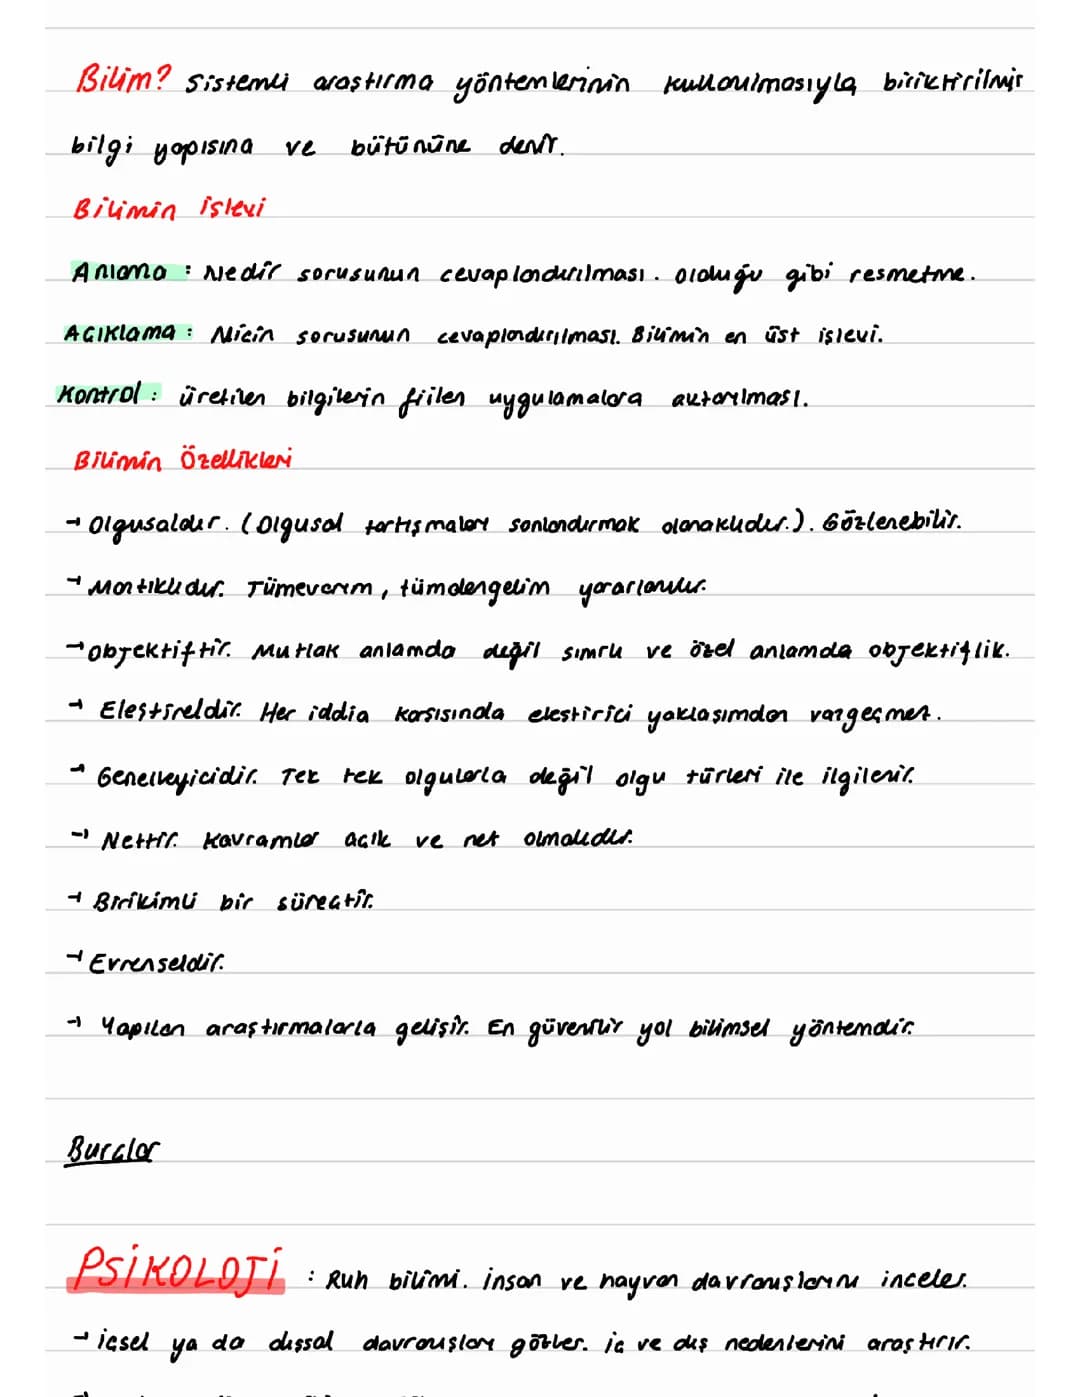 Bilim? Sistemli araştırma yöntemlerinin kullanılmasıyla biriktirilmiş
bilgi yapısına ve bütününe denir.
Bilimin işlevi
Anlama : Nedir sorusunun cevaplandırılması. olduğu gibi resmetme.
Açıklama : Niçin sorusunun cevaplandırılması. Bilimin en üst işlevi.
Kontrol : üretilen bilgilerin fiilen uygulamalara aktarılması.
Bilimin Özellikleri
→ Olgusaldır. (Olgusal tartışmaları sonlandırmak olanaklıdır.). Gözlenebilir.
→ Mantıklıdır. Tümevarım, tümdengelim yararlanılır.
→ objektiftir. Mutlak anlamda değil sınırlı ve özel anlamda objektiflik.
→ Eleştireldir. Her iddia karşısında eleştirici yaklaşımdan vazgeçmez.
→ Genelleyicidir. Tek tek olgularla değil olgu türleri ile ilgilenir.
→ Nettir. Kavramlar açık ve net olmalıdır.
→ Birikimli bir süreçtir.
→ Evrenseldir.
→ Yapılan araştırmalarla gelişir. En güvenilir yol bilimsel yöntemdir.
Burçlar
PSİKOLOJİ : Ruh bilimi. insan ve hayvan davranışlarını inceler.
→ içsel ya da dışsal davranışları gözler. iç ve dış nedenlerini araştırır.